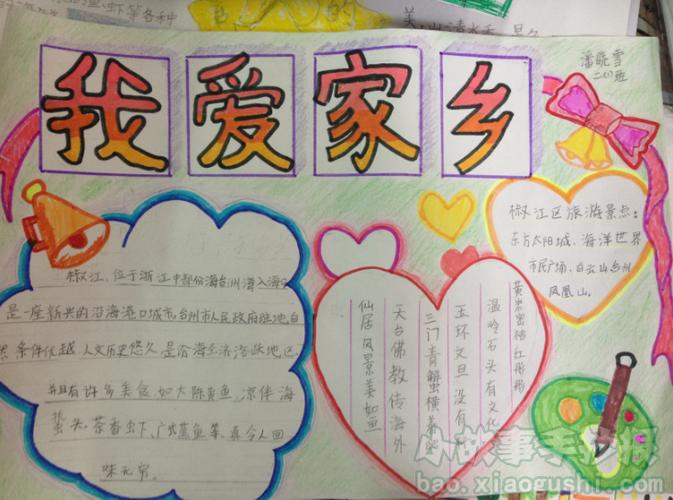 虾等各种
我爱家乡
潘晓雪
二(1)班
椒江、位于浙江中部份海台州湾入海口
是一座新兴的沿海港口城市。台州市人民政府驻地,自
条件优越、人文历史悠久,是沿海经济活跃地区,
并且有许多美食,如大陈黄鱼、凉伴海
蜇头、茶香虾、广式蒸鱼等,真令人回
味无穷。
椒江区旅游景点:
东方太阳城、海洋世界
市民广场、白云山台州
凤凰山。
黄岩蜜桔红彤彤
温岭石头有文化
玉环文旦没有
三门青蟹横着
天台佛教传海外
仙居风景美如画
小故事手抄报
bao.xiaogushi.com